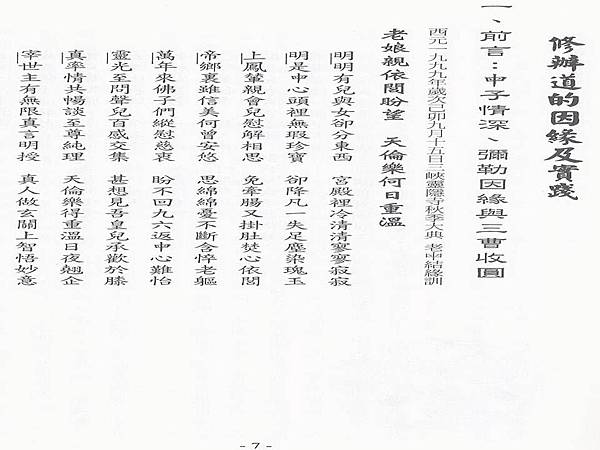 修辦道的因緣及實踐
一、前言：申子情深、彌勒因緣與三曹收圓
西元一九九九年歲次己卯九月十五日三峽靈隱寺秋季大典 老申結緣訓
老娘親依閭盼望 天倫樂何日重溫
明明有兒與女卻分東西 宮殿裡冷清清寥寥寂寂
明是申心頭裡無瑕珍寶 卻降凡一失足塵染瑰玉
上鳳輦親會兒慰解相思 免牽腸又掛肚焚心依閭
帝鄉裏雖信美何曾安悠 思綿綿憂不斷含悴老軀
萬年來佛子們縱慰慈衷 盼不回九六返申心難怡
靈光至問聲兒百感交集 甚想見吾皇兒承歡於膝
真率情共暢談至尊純理 天倫樂得重溫日夜翹企
宰世主有無限真言明授 真人做玄關上智悟妙意
- 7 -